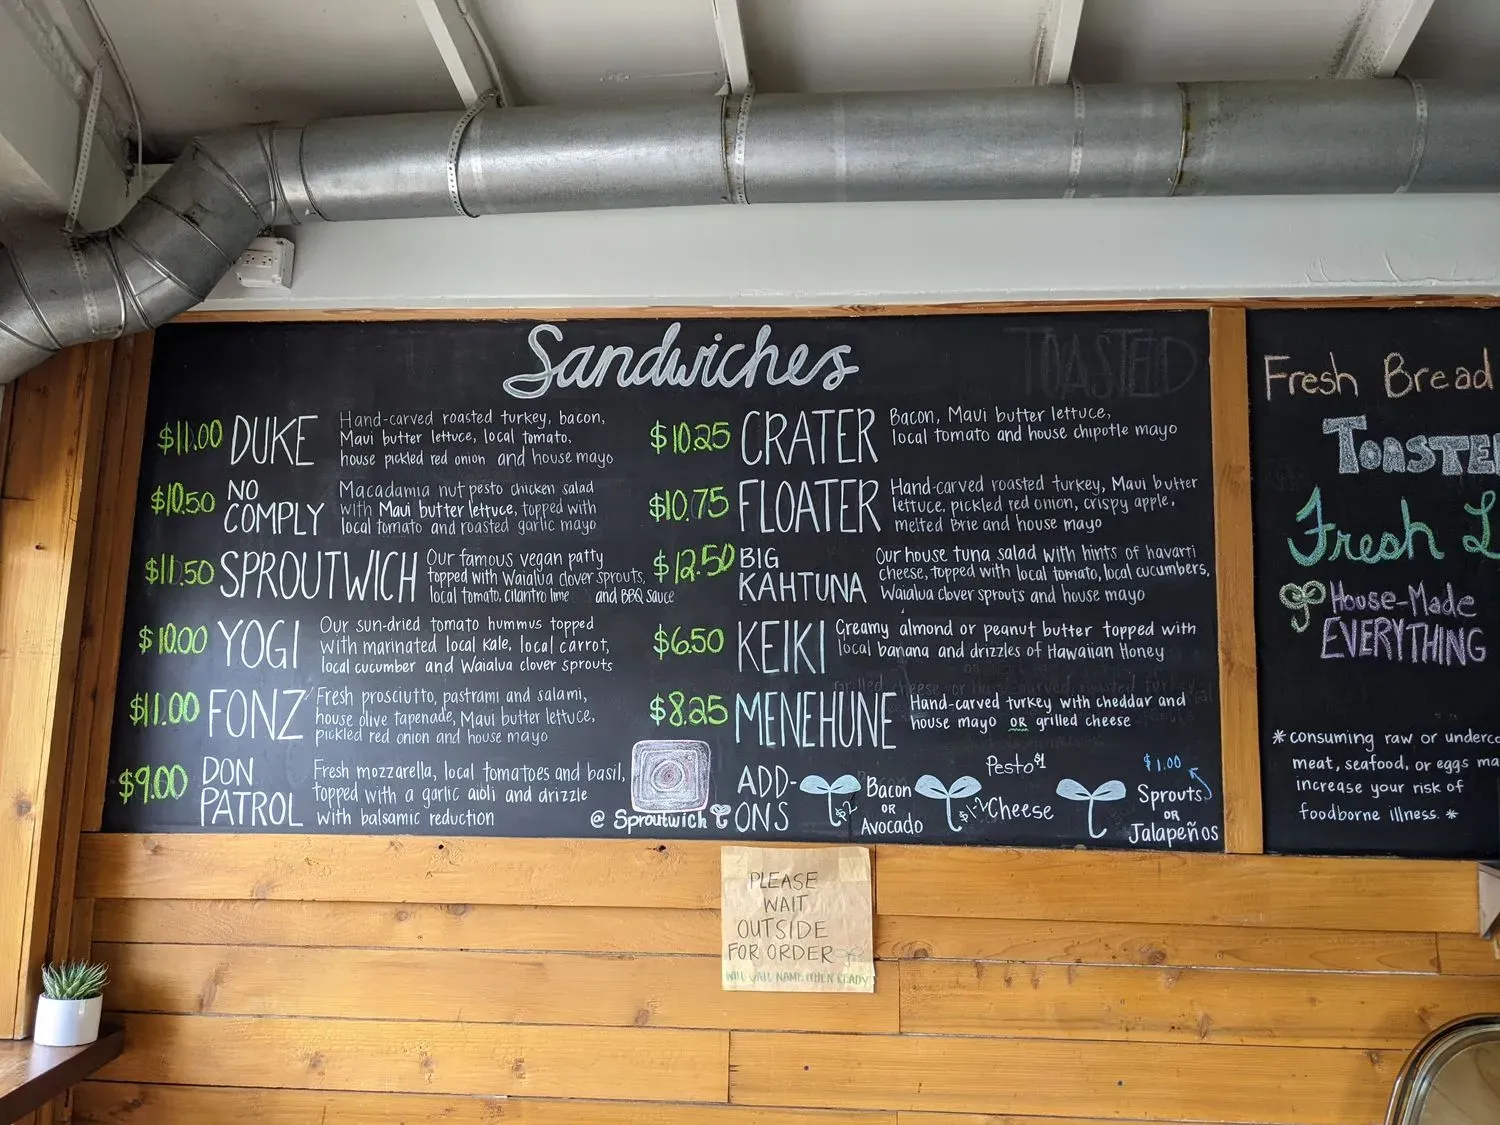 Sandwiches
TOASTED
$11.00 DUKE Hand-carved roasted turkey, bacon,
Maui butter lettuce, local tomato,
house pickled red onion and house mayo
$10.50 NO COMPLY Macadamia nut pesto chicken salad
with Maui butter lettuce, topped with
local tomato and roasted garlic mayo
$11.50 SPROUTWICH Our famous vegan patty
topped with Waialua clover sprouts,
local tomato, cilantro lime and BBQ sauce
$10.00 YOGI Our sun-dried tomato hummus topped
with marinated local kale, local carrot,
local cucumber and Waialua clover sprouts
$11.00 FONZ Fresh prosciutto, pastrami and salami,
house olive tapenade, Maui butter lettuce,
pickled red onion and house mayo
$9.00 DON PATROL Fresh mozzarella, local tomatoes and basil,
topped with a garlic aioli and drizzle
with balsamic reduction
@ Sproutwich
$10.25 CRATER Bacon, Maui butter lettuce,
local tomato and house chipotle mayo
$10.75 FLOATER Hand-carved roasted turkey, Maui butter
lettuce, pickled red onion, crispy apple,
melted Brie and house mayo
$12.50 BIG KAHTUNA Our house tuna salad with hints of havarti
cheese, topped with local tomato, local cucumbers,
Waialua clover sprouts and house mayo
$6.50 KEIKI Creamy almond or peanut butter topped with
local banana and drizzles of Hawaiian Honey
$8.25 MENEHUNE Hand-carved turkey with cheddar and
house mayo OR grilled cheese
ADD-
ONS
$2 Bacon
OR
Avocado
Pesto $1
$1-2 Cheese
$1.00
Sprouts
OR
Jalapeños
Fresh Bread
TOASTE
Fresh L
House-Made
EVERYTHING
*consuming raw or underco
meat, seafood, or eggs ma
increase your risk of
foodborne illness.*
PLEASE
WAIT
OUTSIDE
FOR ORDER
WILL CALL NAME WHEN READY